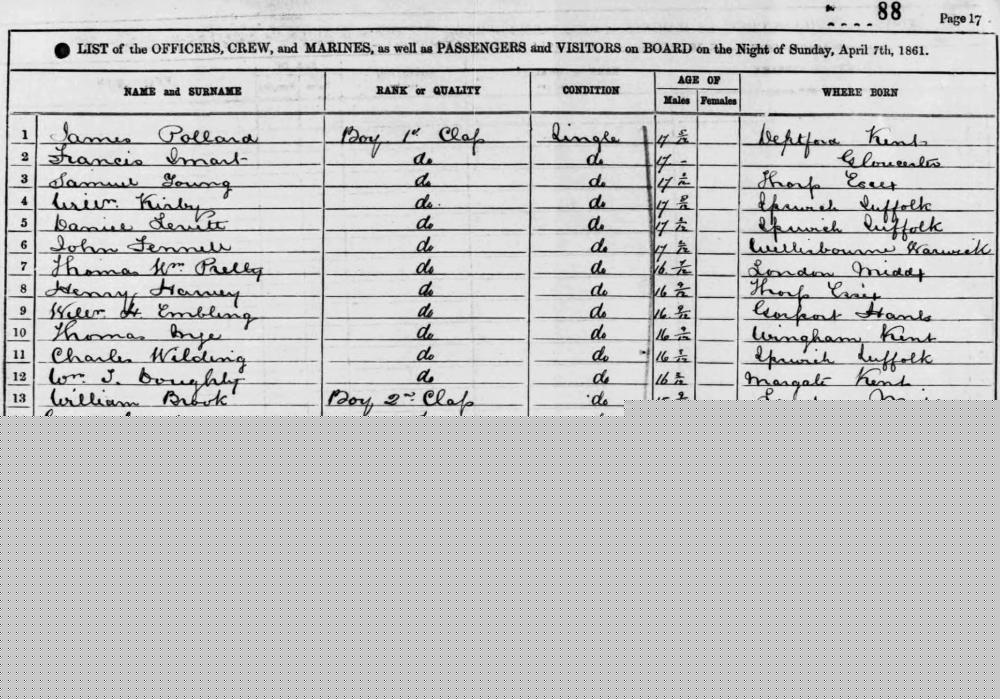 88
Page 17
LIST of the OFFICERS, CREW, and MARINES, as well as PASSENGERS and VISITORS on BOARD on the Night of Sunday, April 7th, 1861.
NAME and SURNAME RANK or QUALITY CONDITION AGE OF WHERE BORN
Males Females
1 James Pollard Boy 1st Class Single 17 Deptford Kent
2 Francis Smart do do 17 - Gloucester
3 Samuel Young do do 17 Thorp Essex
4 Kirby do. do 17 Ipswich Suffolk
5 Daniel Levitt do do 17 Ipswich Suffolk
6 John Fennell do do 17 Warwick
7 Thomas Wm Pretty do do 16 7/12 London Middx
8 Henry Harvey do do 16 9/12 Thorp Essex
9 H. Embling do do 16 Gosport Hants
10 Thomas Nye do do 16 9/12 Wingham Kent
11 Charles Wilding do do 16 Ipswich Suffolk
12 Wm. T. Doughty do do 16 Margate Kent
13 William Brook Boy 2nd Class do